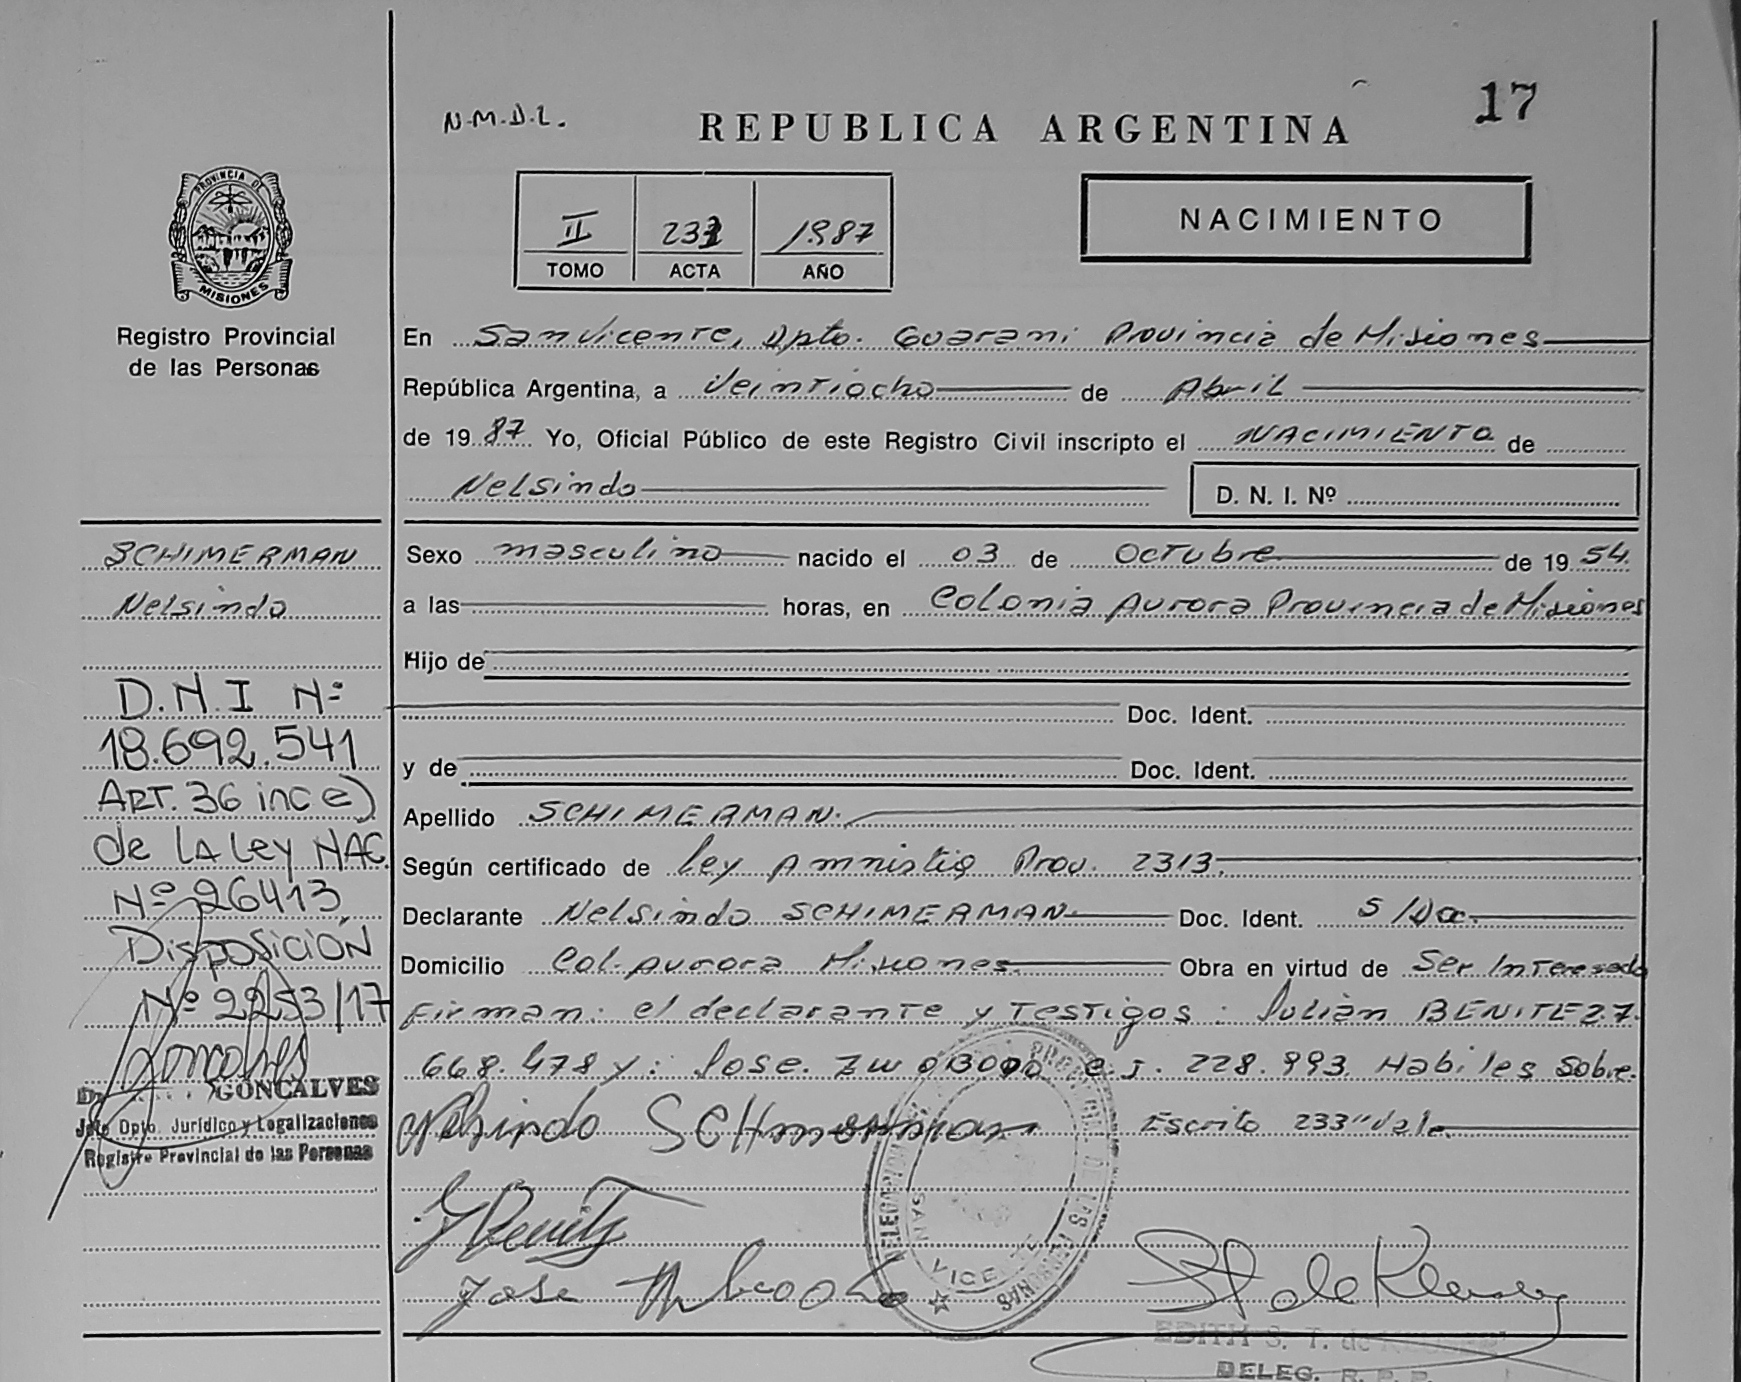 17
N.M.D.L.
REPUBLICA ARGENTINA
PROVINCIA DE
MISIONES
Registro Provincial
de las Personas
II 233 1987
TOMO ACTA AÑO
NACIMIENTO
En San Vicente, Dpto. Guarani Provincia de Misiones
República Argentina, a Veintiocho de Abril
de 1987 Yo, Oficial Público de este Registro Civil inscripto el NACIMIENTO de
Nelsindo D. N. I. Nº
Sexo masculino nacido el 03 de Octubre de 1954.
a las horas, en Colonia Aurora Provincia de Misiones
Hijo de
Doc. Ident.
y de Doc. Ident.
Apellido SCHIMERMAN.
Según certificado de Ley Amnistia Prov. 2313.
Declarante Nelsindo SCHIMERMAN. Doc. Ident. S/Doc.
Domicilio Col. Aurora Misiones. Obra en virtud de Ser Interesado
Firman: el declarante y Testigos: Julián BENITEZ 7.
668.478 y: Jose. C.I. 228.993. Habiles Sobre.
Escrito 233" Vale.
SCHIMERMAN
Nelsindo
D.N.I Nº
18.692.541
ART. 36 inc e)
de LA Ley NAC.
Nº 26413,
Disposición
Nº 2253/17
GONCALVES
Jefe Dpto. Jurídico y Legalizaciones
Registro Provincial de las Personas
Nelsindo
Jose
SAN VICENTE
EDITH S. T. de
DELEG. R. P. P.